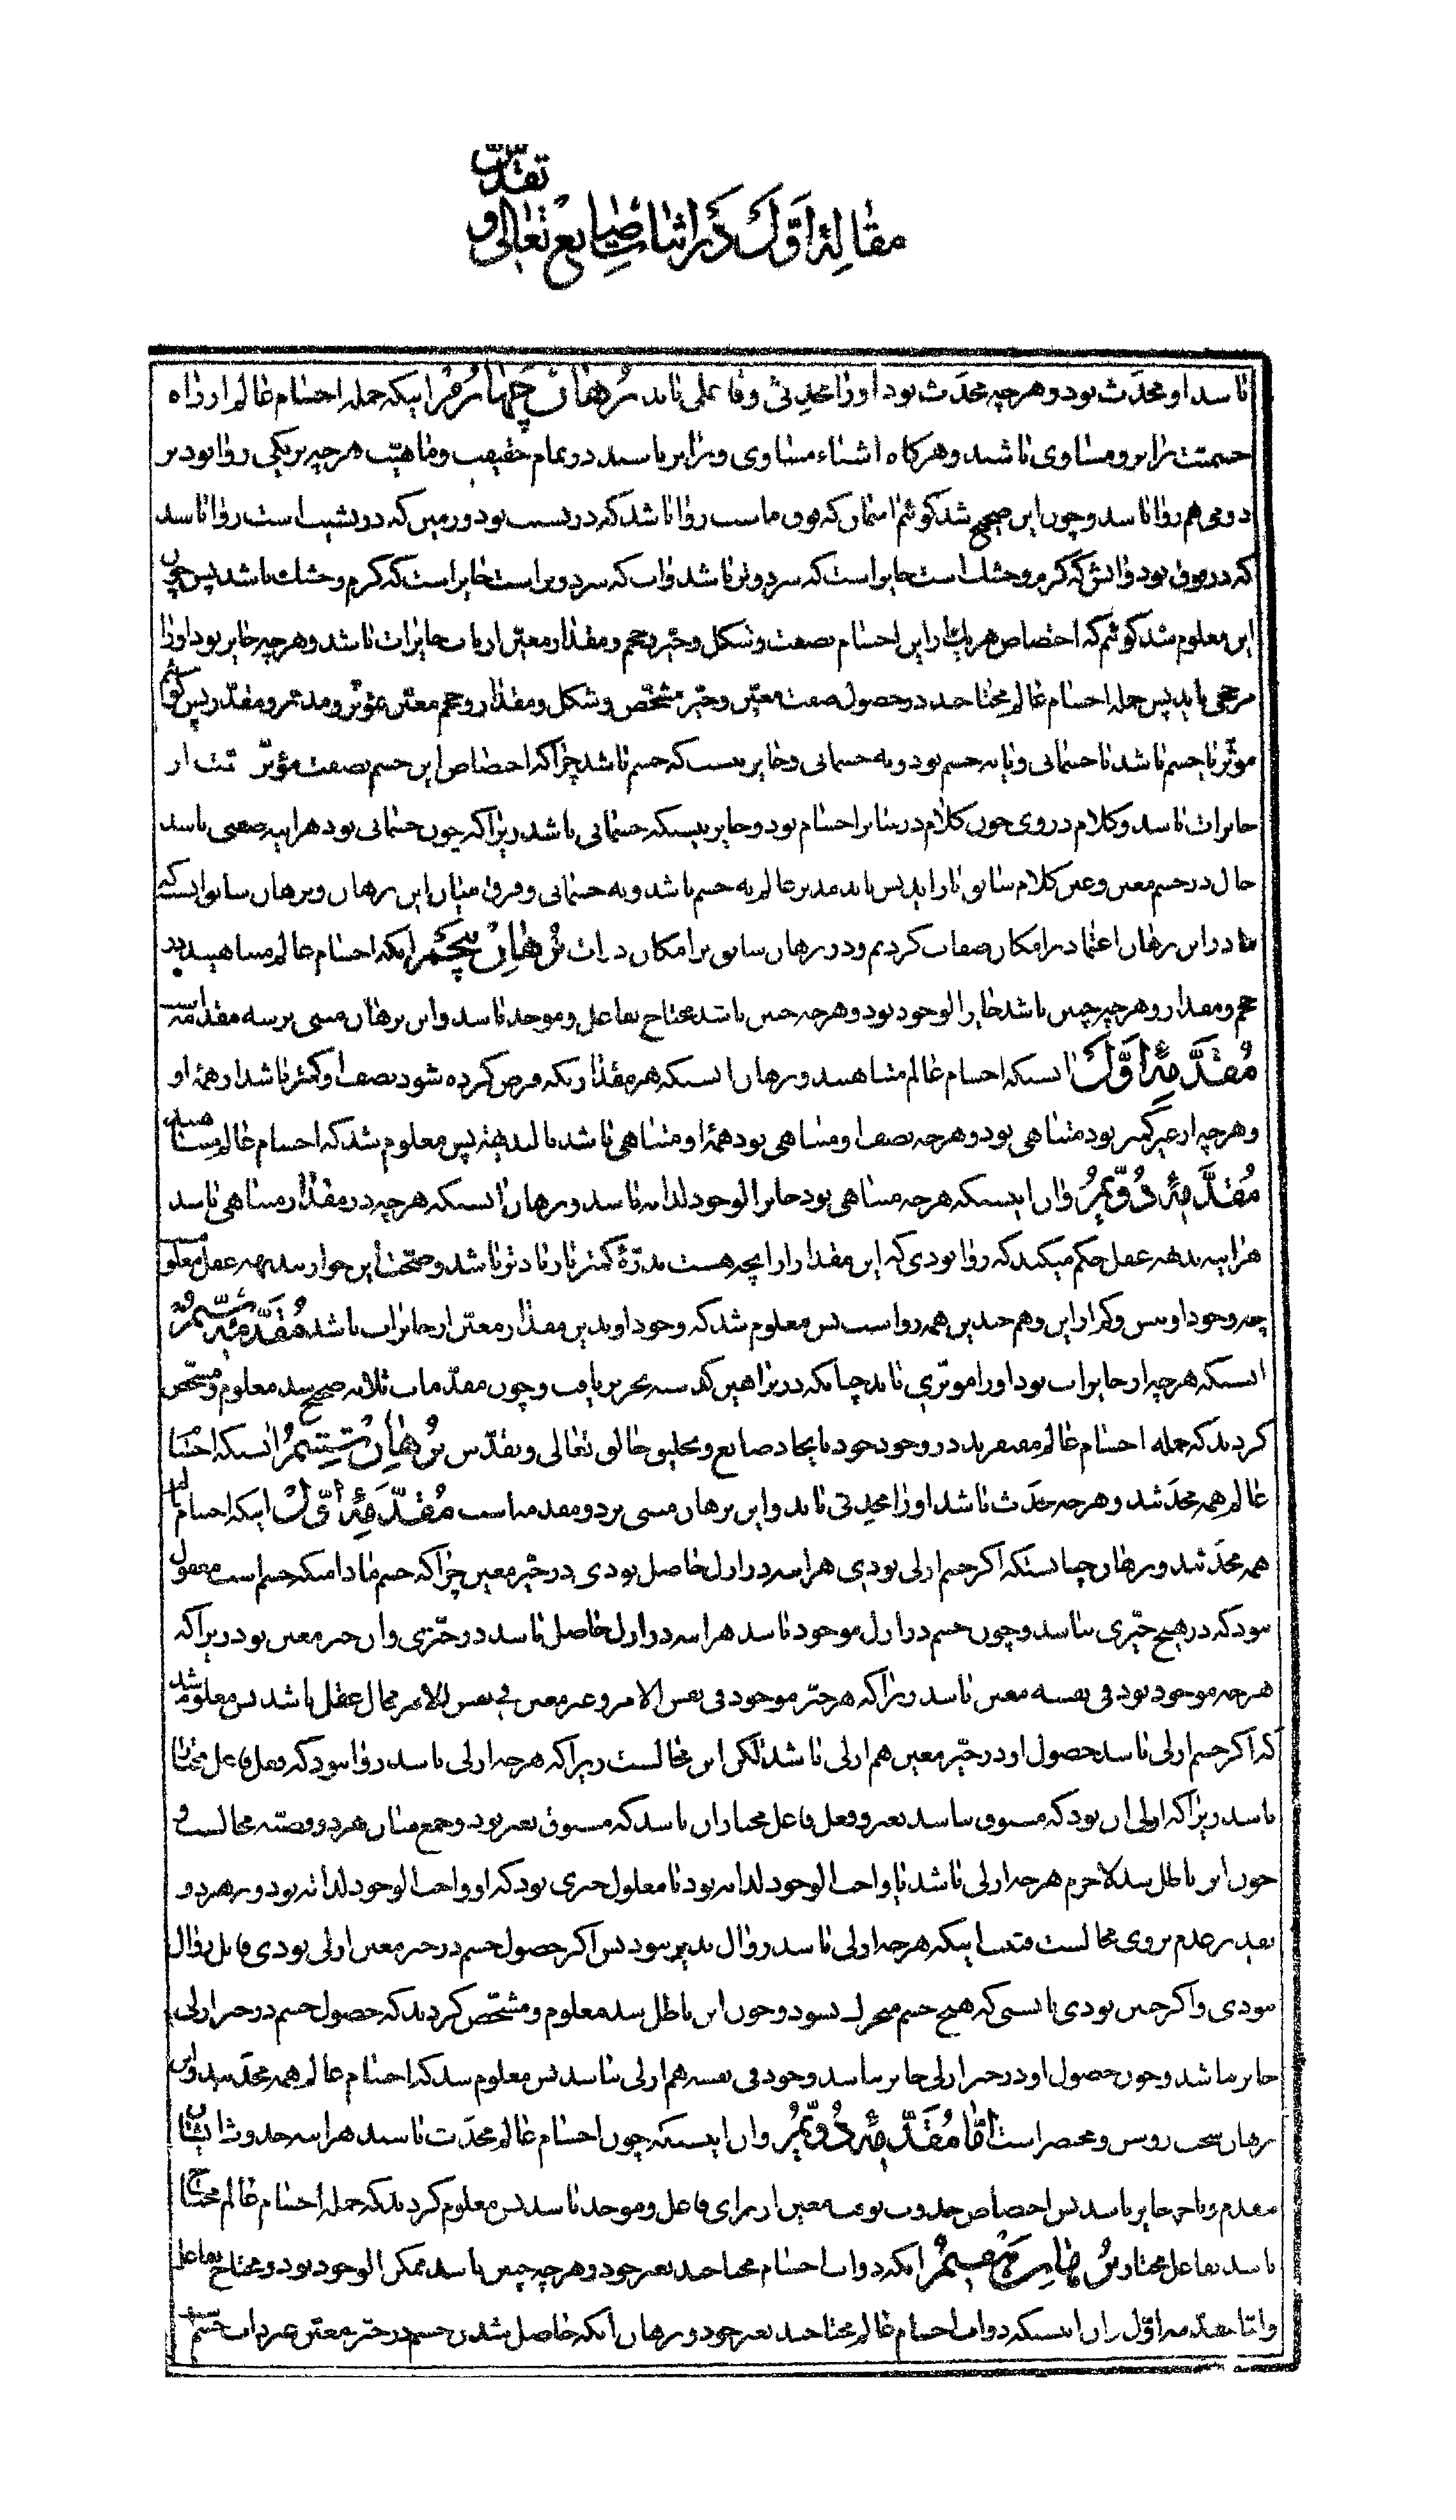 تقدّس
مقالهٔ اوّل در اثبات صانع تعالی و
باشد او محدَث بود و هرچه محدَث بود او را محدِثی و فاعلی باید برهان چهارم انکه جمله اجسام عالم از راه
جسمیّت برابر و مساوی باشند و هرگاه اشیاء مساوی و برابر باشند در تمام حقیقت و ماهیّت هرچه بر یکی روا بود بر
دومی هم روا باشد و چون این صحیح شد گوئیم اسمان که فوق ماست روا باشد که در نشیب بود و زمین که در نشیب است روا باشد
که در فوق بود و اتش که گرم و خشک است جایز است که سرد و تر باشد و اب که سرد و تر است جایز است که گرم و خشک باشد پس چون
این معلوم شد گوئیم که اختصاص هر یک را از این اجسام بصفت و شکل و حیّز و حجم و مقدار معیّن از باب جایزات باشد و هرچه جایز بود او را
مرجحی باید پس جمله اجسام عالم محتاجند در حصول صفت معیّن و حیّز مشخّص و شکل و مقدار و حجم معیّن بمؤثّر و مدبّر و مقدّر پس گوئیم
مؤثّر یا جسم باشد یا جسمانی و یا نه جسم بود و نه جسمانی و جایز نیست که جسم باشد چرا که اختصاص این جسم بصفت مؤثّریّت از
جایزات باشد و کلام در وی چون کلام در سایر اجسام بود و جایز نیستکه جسمانی باشد زیرا که چون جسمانی بود هراینه صفتی باشد
حال در جسم معین و عین کلام سابق باز اید پس باید مدبر عالم نه جسم باشد و نه جسمانی و فرق میان این برهان و برهان سابق انستکه
ما در این برهان اعتماد بر امکان صفات کردیم و در برهان سابق بر امکان ذات برهان پنجم انکه اجسام عالم متناهیند در
حجم و مقدار و هرچه چنین باشد جایز الوجود بود و هرچه چنین باشد محتاج بفاعل و موجد باشد و این برهان مبنی بر سه مقدمه است
مقدّمهٔ اوّل انستکه اجسام عالم متناهیند و برهان انستکه هر مقدار که فرض کرده شود نصف او کمتر باشد از همهٔ او
و هرچه از غیر کمتر بود متناهی بود و هرچه نصف او متناهی بود همهٔ او متناهی باشد بالبدیهه پس معلوم شد که اجسام عالم متناهیند
مقدّمهٔ دوّیم و ان اینستکه هرچه متناهی بود جایز الوجود لذاته باشد و برهان انستکه هرچه در مقدار متناهی باشد
هراینه بدیهه عقل حکم میکند که روا بودی که این مقدار از انچه هست بذرّهٔ کمتر یا زیادتر باشد و صحّت این جواز ببدیهه عقل معلومست
چه وجود او بیش و کم از این و هم چندین همه رواست پس معلوم شد که وجود او بدین مقدار معیّن از جایزات باشد مقدّمهٔ سیّم
انستکه هرچه از جایزات بود او را مؤثّری باید چنانکه در براهین گذشته تحریر یافت و چون مقدّمات ثلاثه صحیح شد معلوم و مشخّص
گردید که جمله اجسام عالم مفتقرند در وجود خود بایجاد صانع و تخلیق خالق تعالی و تقدّس برهان ششم انستکه اجسام
عالم همه محدَثند و هرچه محدَث باشد او را محدِثی باید و این برهان مبنی بر دو مقدمه است مقدّمهٔ اوّل اینکه اجسام عالم
همه محدَثند و برهان چنانستکه اگر جسم ازلی بودی هراینه در ازل حاصل بودی در حیّز معین چرا که جسم مادامیکه جسم است معقول
نبود که در هیچ حیّزی نباشد و چون جسم در ازل موجود باشد هراینه در ازل حاصل باشد در حیّزی و ان حیز معین بود زیرا که
هرچه موجود بود فی نفسه معین باشد زیرا که هر حیّز موجود فی نفس الامر و غیر معین فی نفس الامر محال عقل باشد پس معلوم شد
که اگر جسم ازلی باشد حصول او در حیّز معین هم ازلی باشد لکن این محالست زیرا که هرچه ازلی باشد روا نبود که فعل فاعل مختار
باشد زیرا که ازلی ان بود که مسبوق نباشد بغیر و فعل فاعل مختار ان باشد که مسبوق بغیر بود و جمع میان هر دو قضیّه محالست و
چون این باطل شد لاجرم هرچه ازلی باشد یا واجب الوجود لذاته بود یا معلول چیزی بود که او واجب الوجود لذاته بود و بر هر دو
تقدیر عدم بر وی محالست پس اینکه هرچه ازلی باشد زوال پذیر نبود پس اگر حصول جسم در حیز معین ازلی بودی قابل زوال
نبودی و اگر چنین بودی بایستی که هیچ جسم متحرک نبود و چون این باطل شد معلوم و مشخّص گردید که حصول جسم در حیز ازلی
جایز نباشد و چون حصول او در حیز ازلی جایز نباشد وجود فی نفسه هم ازلی نباشد پس معلوم شد که اجسام عالم همه محدَثند و این
برهان سخت روشن و مختصر است امّا مقدّمهٔ دوّیم و ان اینستکه چون اجسام عالم محدَث باشند هراینه حدوث ایشان
مقدم و تاخیر جایز باشد پس اختصاص حدوث بوقت معین از برای فاعل و موجد باشد پس معلوم گردید که جمله اجسام عالم محتاج
باشند بفاعل مختار برهان هفتم انکه ذوات اجسام محتاجند بغیر خود و هرچه چنین باشد ممکن الوجود بود و محتاج بفاعل
و امّا مقدّمه اوّل ان انستکه ذوات اجسام عالم محتاجند بغیر خود و برهان انکه حاصل شدن جسم در حیّز معیّن غیر ذات جسم است